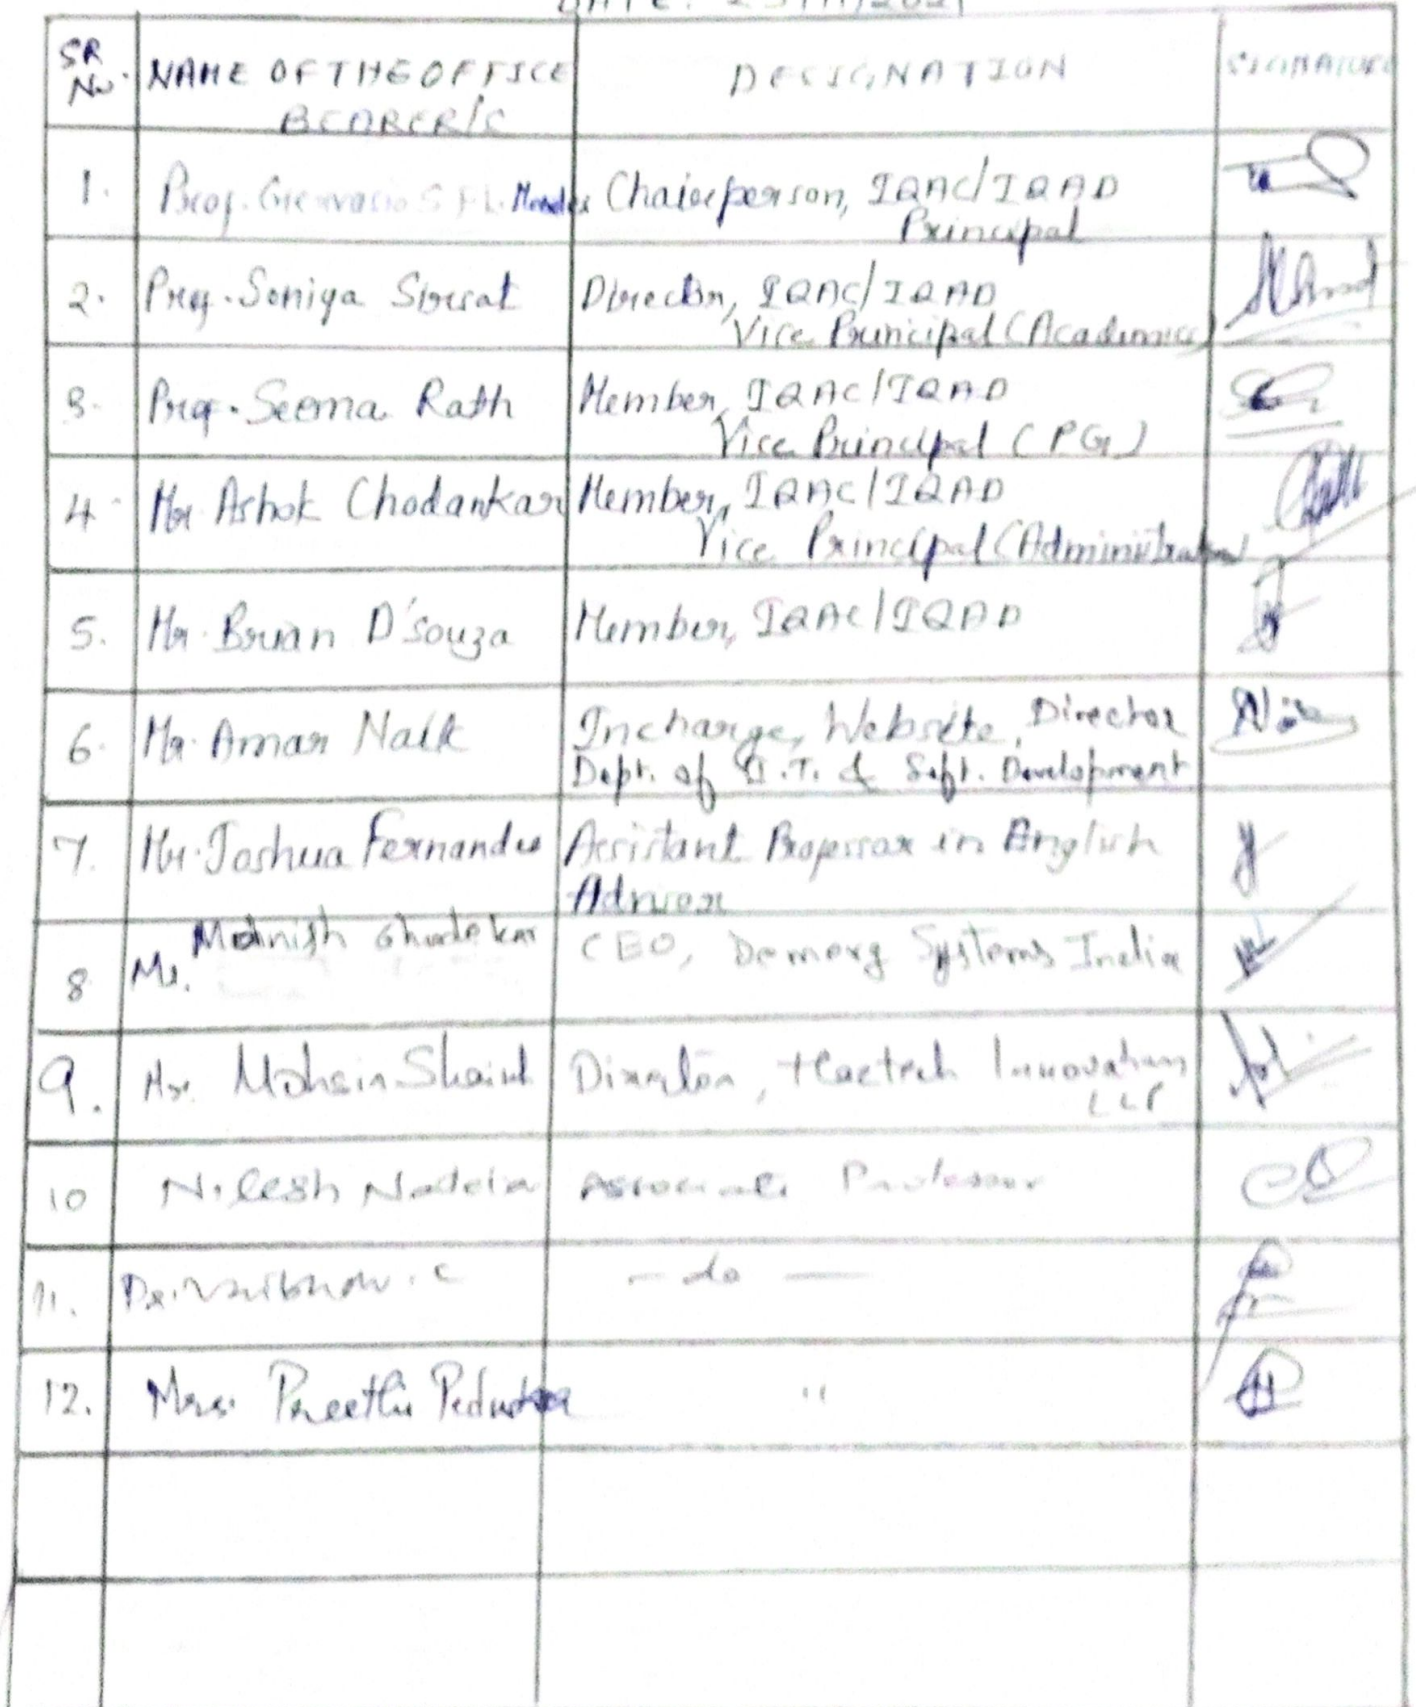 SR No. NAME OF THE OFFICE DESIGNATION SIGNATURE
BEARER/S
1. Prof. Gervasio S F L Mendes Chairperson, IQAC/IQAD
Principal
2. Prof. Soniya Sirsat Director, IQAC/IQAD
Vice Principal (Academics)
3. Prof. Seema Rath Member, IQAC/IQAD
Vice Principal (PG)
4. Mr Ashok Chodankar Member, IQAC/IQAD
Vice Principal (Administration)
5. Mr. Brian D'souza Member, IQAC/IQAD
6. Mr. Amar Naik Incharge, Website, Director
Dept. of I.T. & Soft. Development
7. Mr. Joshua Fernandes Assistant Professor in English
Advisor
8 Mr. CEO, Systems India
9. Mr. Mohsin Shaikh Director, Innovations
LLP
10 Nilesh Associate Professor
11. Dr. Vaibhav. C – do —
12. Mrs. Preethi "